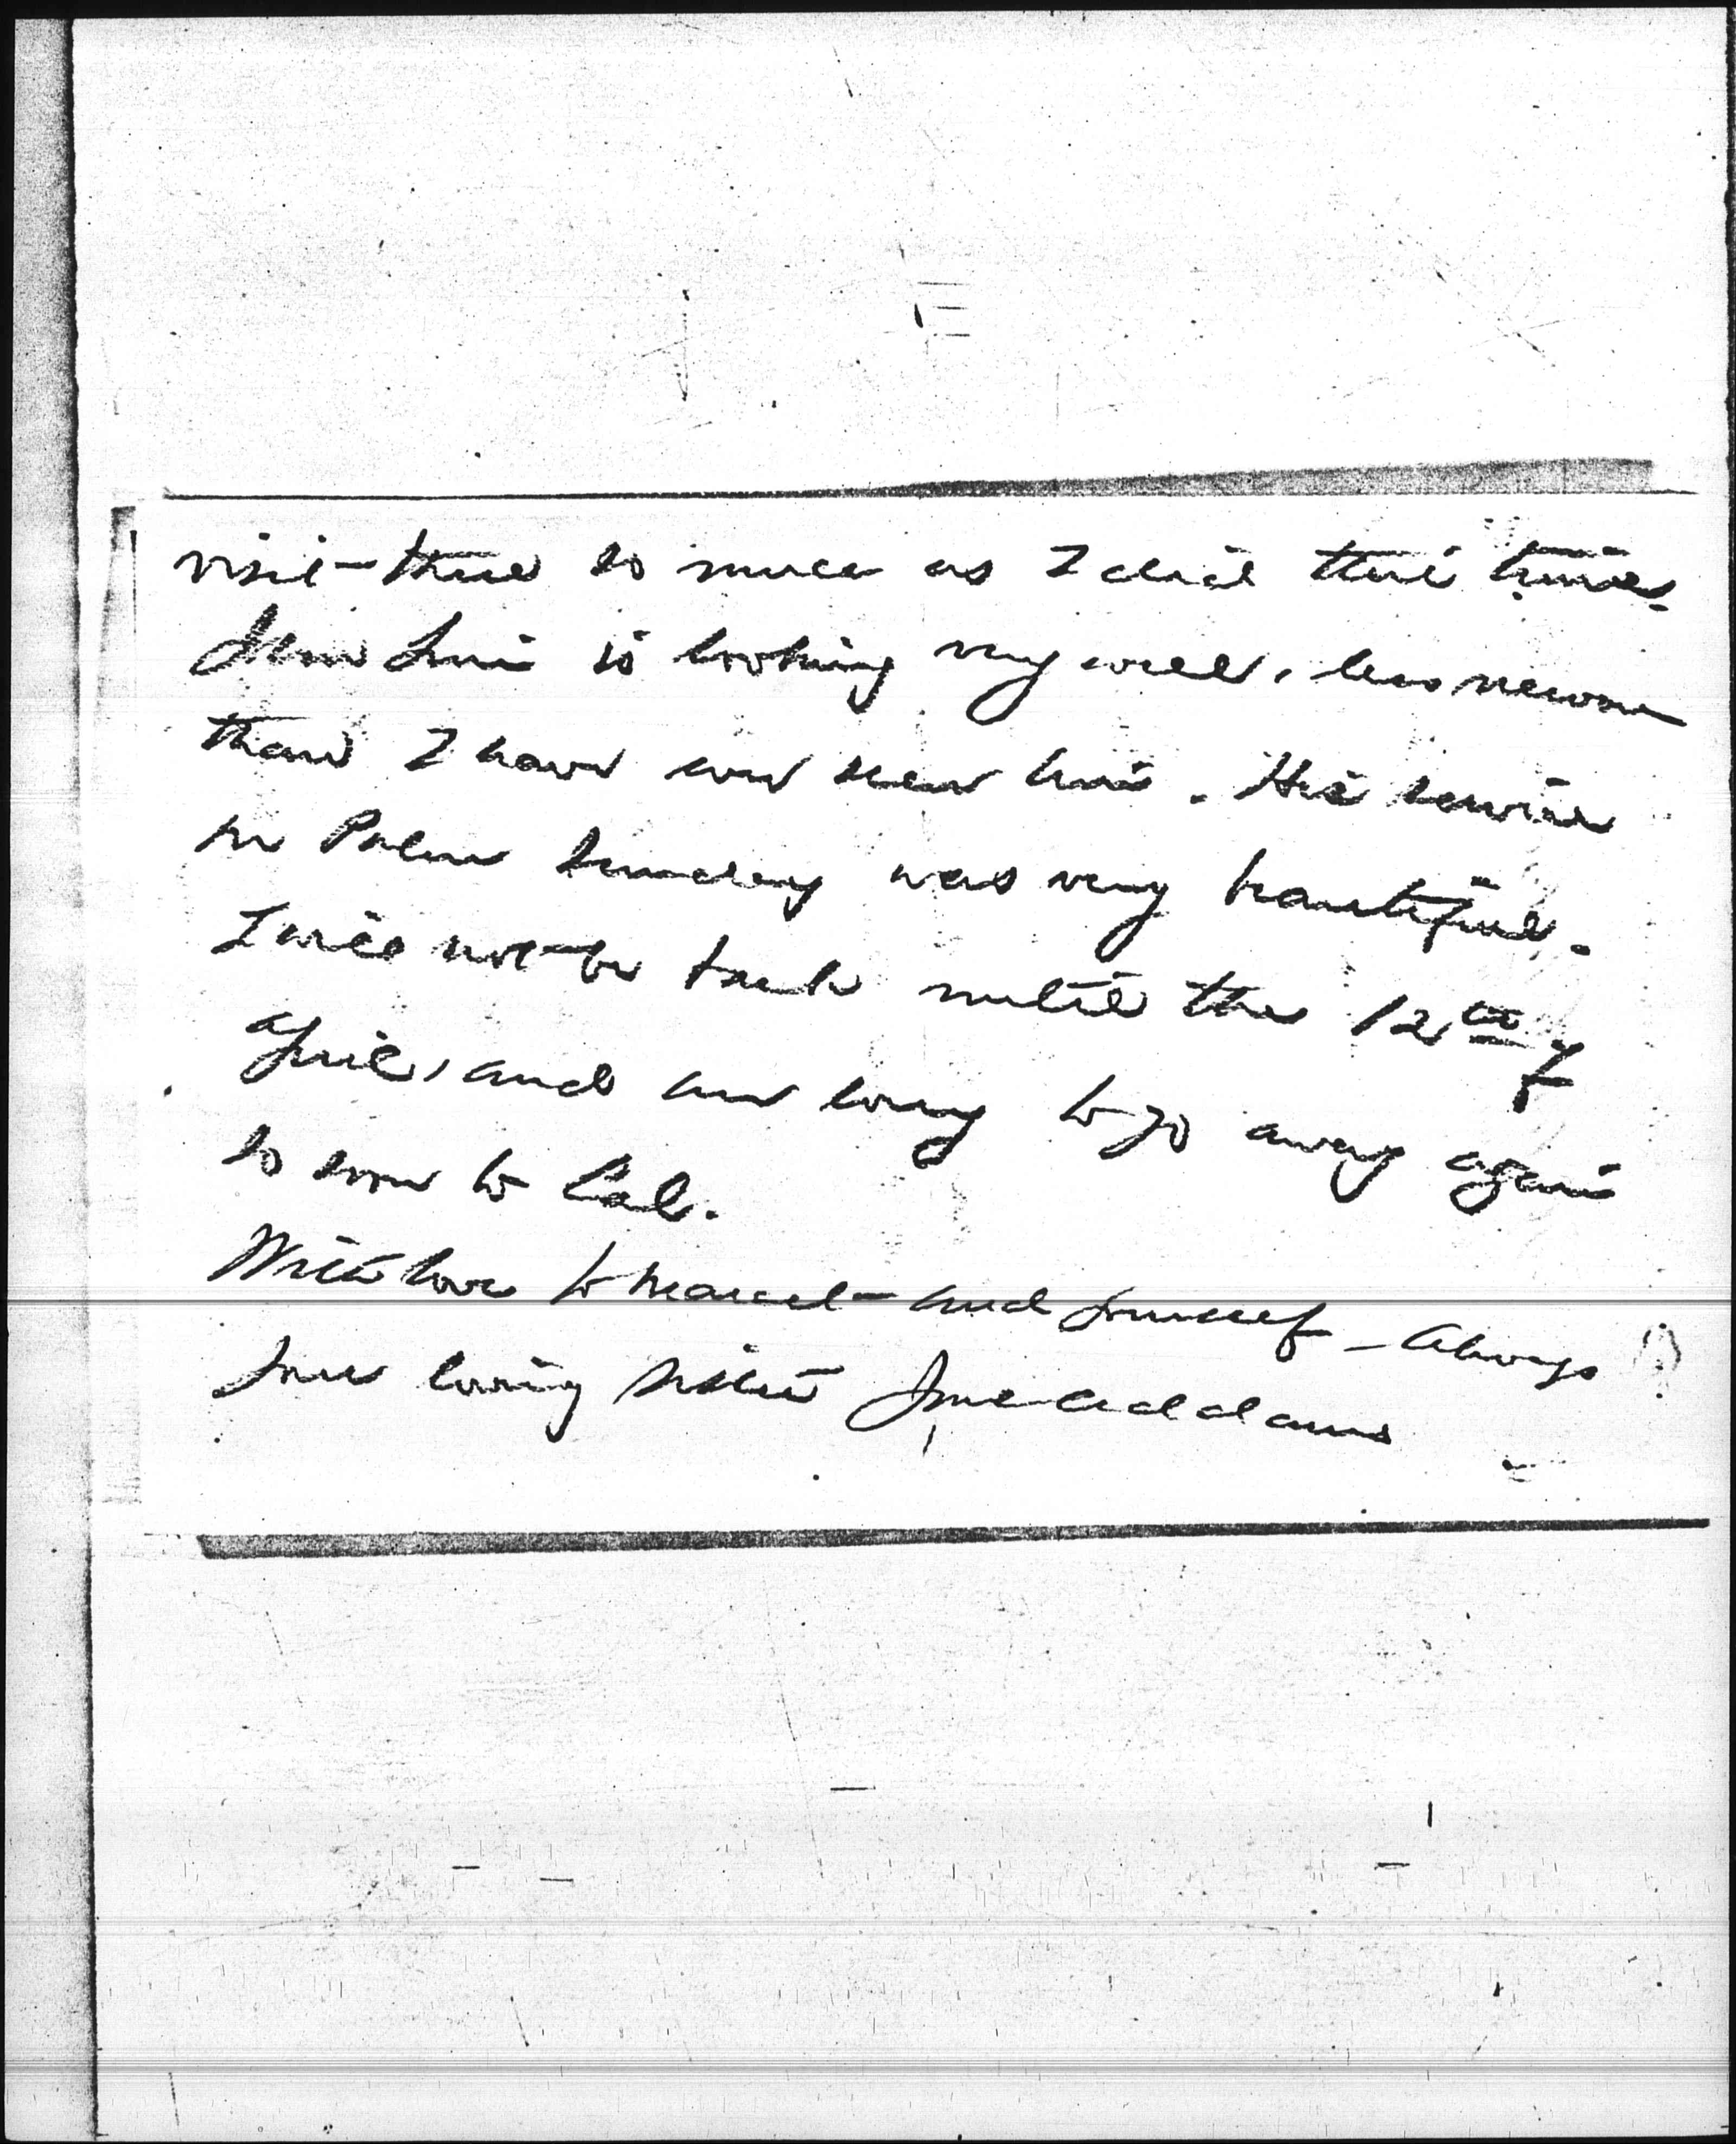 visit there so much as I did this time.
John Linn is looking very well, less nervous
than I have ever seen him. His service
on Palm Sunday was very beautiful.
I will not be back until the 12th of
April, and am sorry to go away again
so soon to Cal.
With love to Marcet and yourself - Always
your loving sister Jane Addams